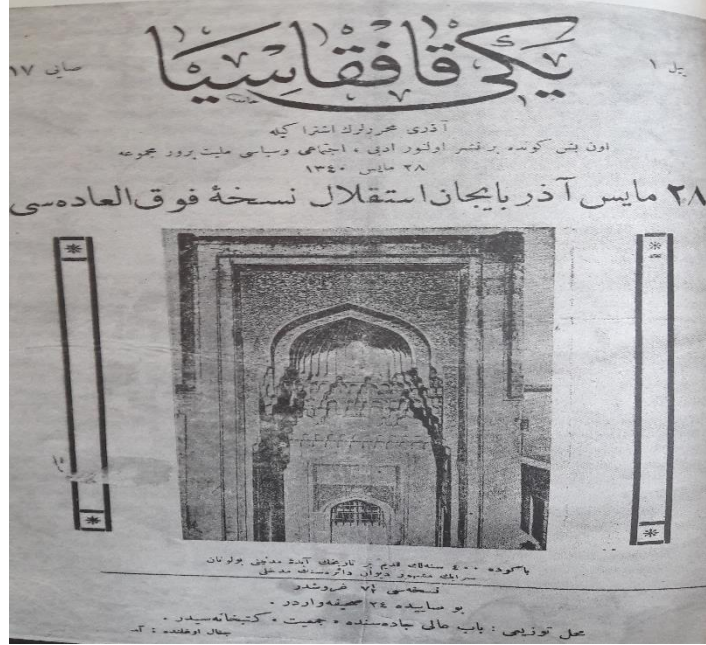 ییل ١
یڭی قافقاسیا
صایی ١٧
آذری محررلرك اشتراكیله
اون بش كونده بر نشر اولنور ادبی ، اجتماعی وسیاسی ملیت پرور مجموعه
٢٨ مایس ١٣٤٠
٢٨ مایس آذربایجان استقلال نسخهٔ فوق العاده سی
باكوده ٤٠٠ سنه لك قدیم بر تاریخك آبدهٔ مدنیتی بولونان
سرایك مشهور دیوان دائره سنك مدخلی
نسخه سی ٧½ غروشدر
بو صاییده ٢٤ صحیفه واردر .
محل توزیعی : باب عالی جاده سنده ، جمعیت ، كتبخانه سیدر .